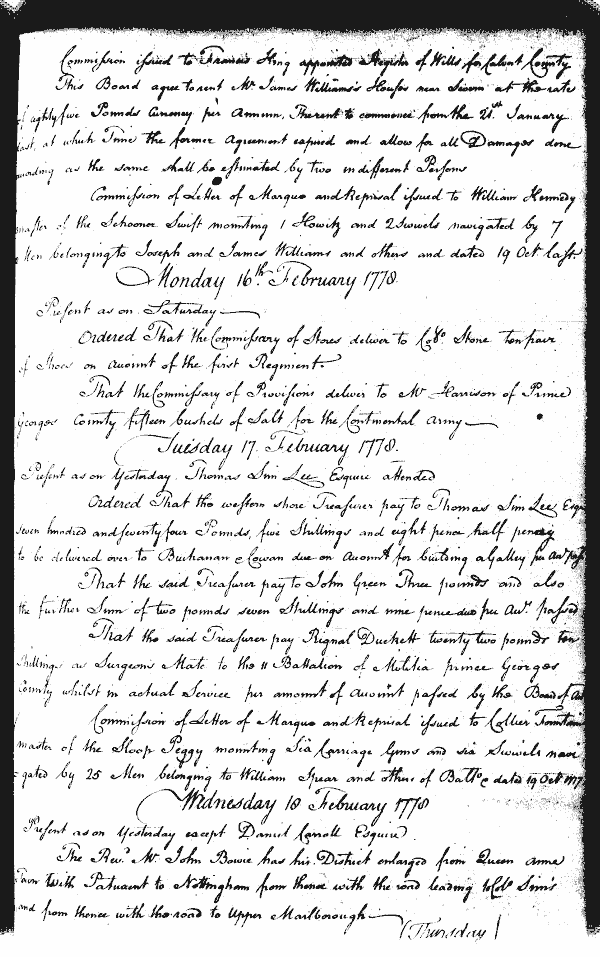 Commission issued to Francis King appointed Register of Wills for Calvert County
This Board agree to rent Mr James Williams's Houses near Severn at the rate
of eighty five Pounds Currency per Annum, The rent to commence from the 21st January
last, at which Time the former Agreement expired and allow for all Damages done
according as the same shall be estimated by two indifferent Persons
Commission of Letter of Marque and Reprisal issued to William Kennedy
master of the Schooner Swift mounting 1 Howitz and 2 Swivels navigated by 7
Men belonging to Joseph and James Williams and others and dated 19 Oct last.
Monday 16th February 1778
Present as on Saturday
Ordered That the Commissary of Stores deliver to Colo Stone ten pair
of Shoes on account of the first Regiment.
That the Commissary of Provisions deliver to Mr Harrison of Prince
Georges County fifteen bushels of Salt for the Continental Army
Tuesday 17. February 1778.
Present as on Yesterday. Thomas Sim Lee Esquire attended
Ordered That the western shore Treasurer pay to Thomas Sim Lee Esqr
seven hundred and seventy four Pounds, five Shillings and eight pence half penny
to be delivered over to Buchanan & Cowan due on Account for building a Galley per Acct pass
That the said Treasurer pay to John Green Three pounds and also
the further Sum of two pounds seven Shillings and nine pence due per Acct passed
That the said Treasurer pay Rignal Duckett twenty two pounds ten
Shillings as Surgeons Mate to the 11 Battalion of Militia prince Georges
County whilst in actual Service per amount of account passed by the Board of Aud
Commission of Letter of Marque and Reprisal issued to Collier
master of the Sloop Peggy mounting Six Carriage Guns and six Swivels navi
gated by 25 Men belonging to William Spear and others of Balto & dated 19 Oct 1777
Wednesday 18 February 1778
Present as on Yesterday except Daniel Carroll Esquire
The Revd Mr John Bowie has his District enlarged from Queen anne
Town with Patuxent to Nottingham from thence with the road leading to Colo Sim's
and from thence with the road to Upper Marlborough
(Thursday)